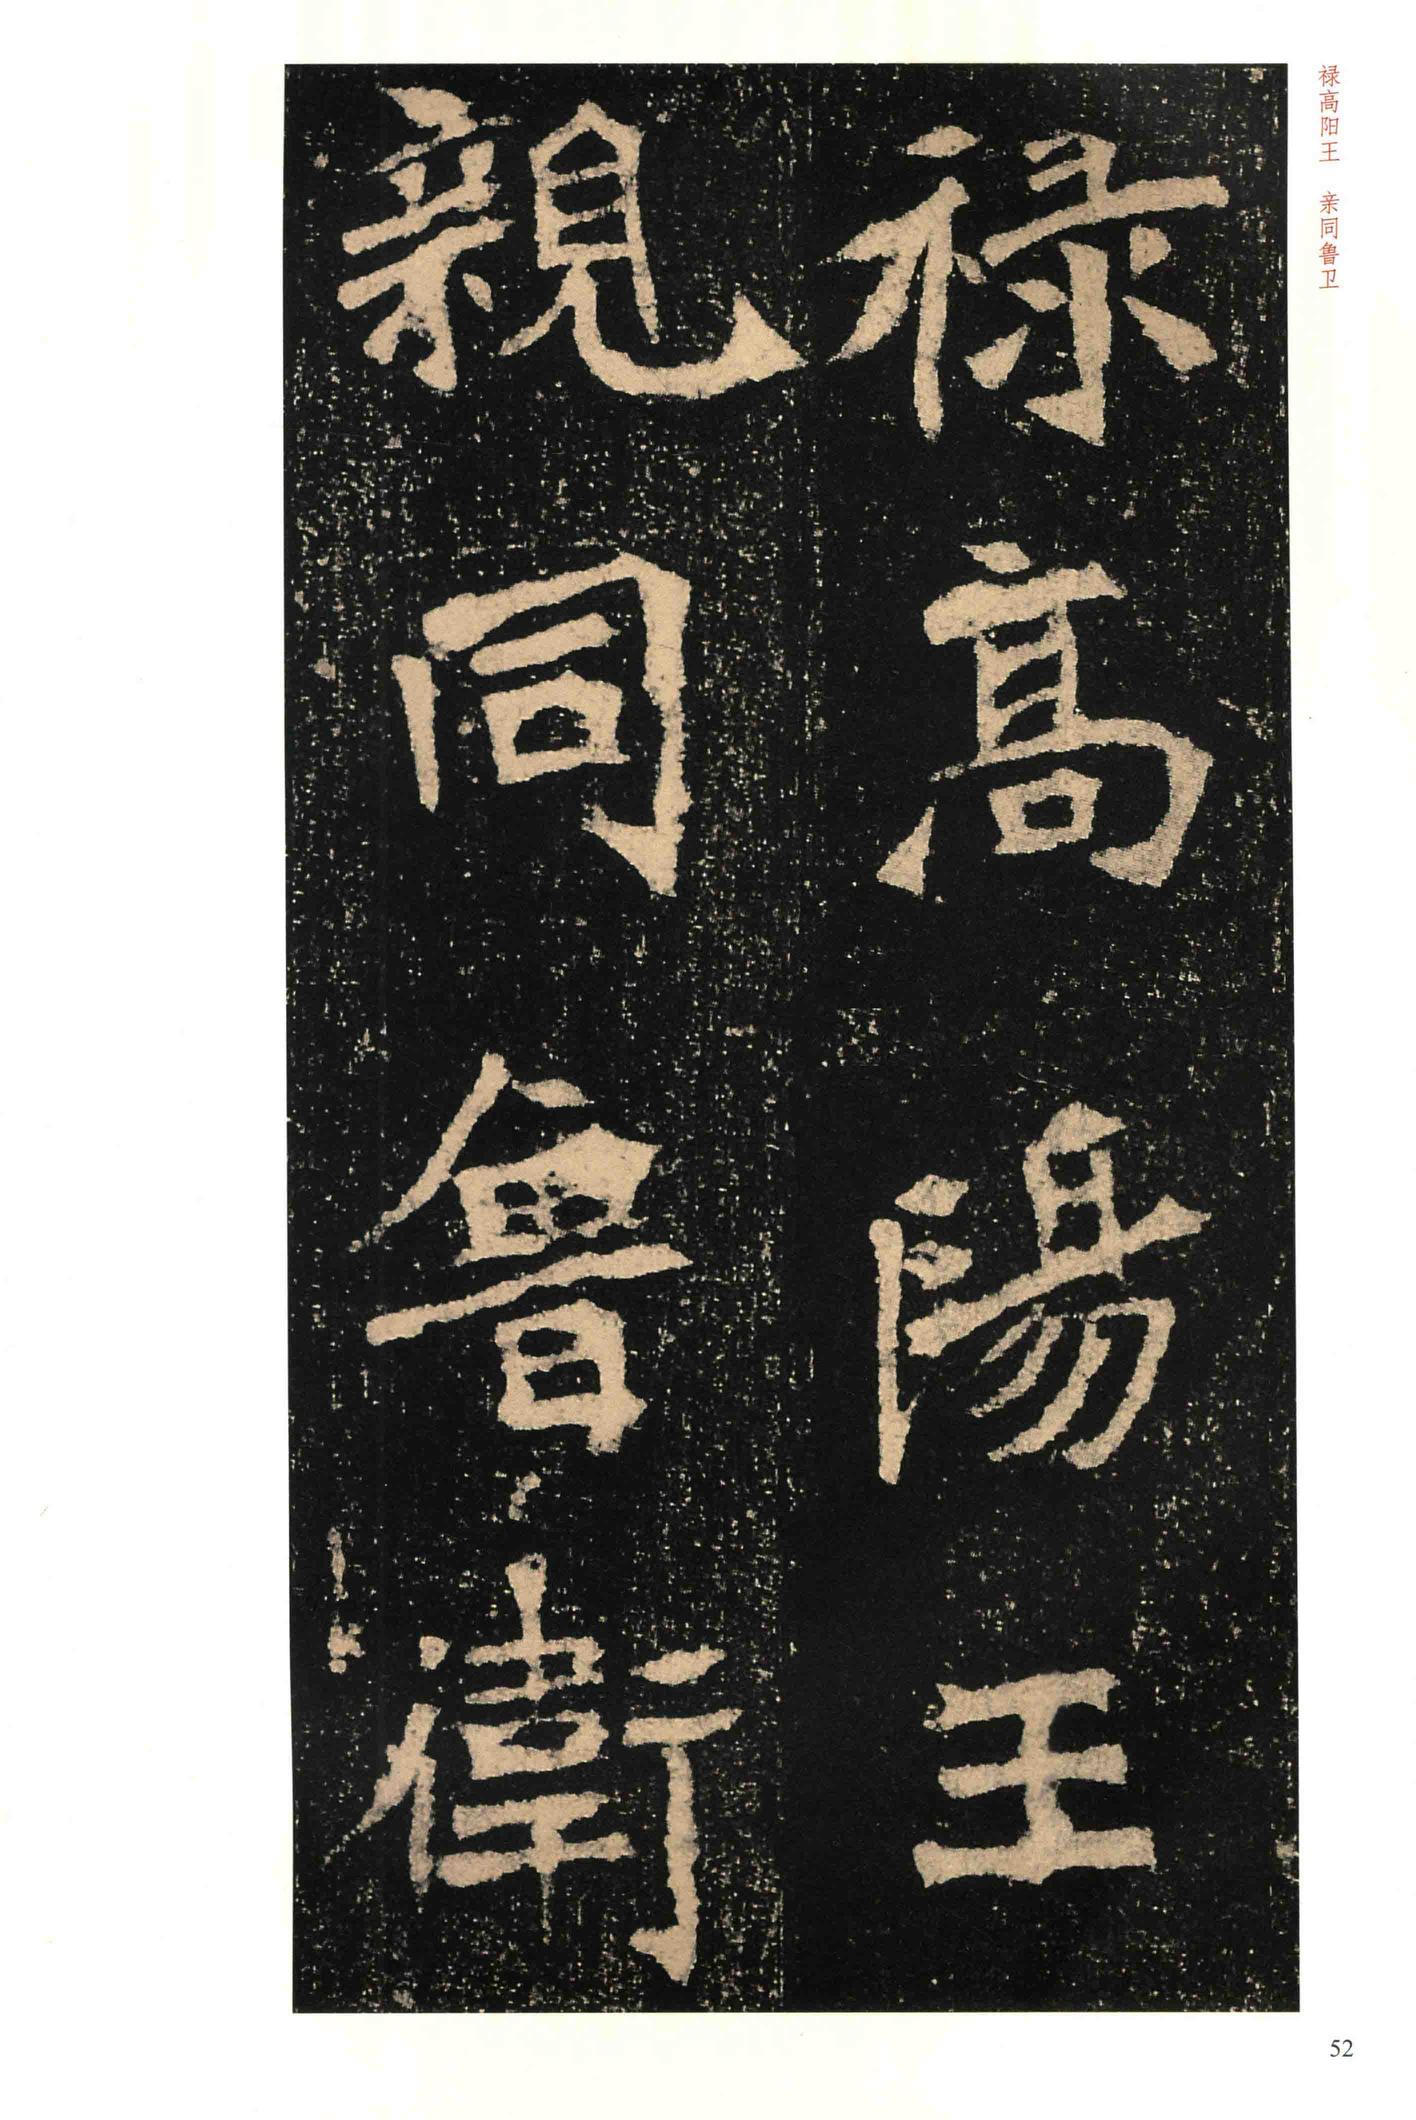 禄高阳王　亲同鲁卫
禄高陽王
親同魯衛
52